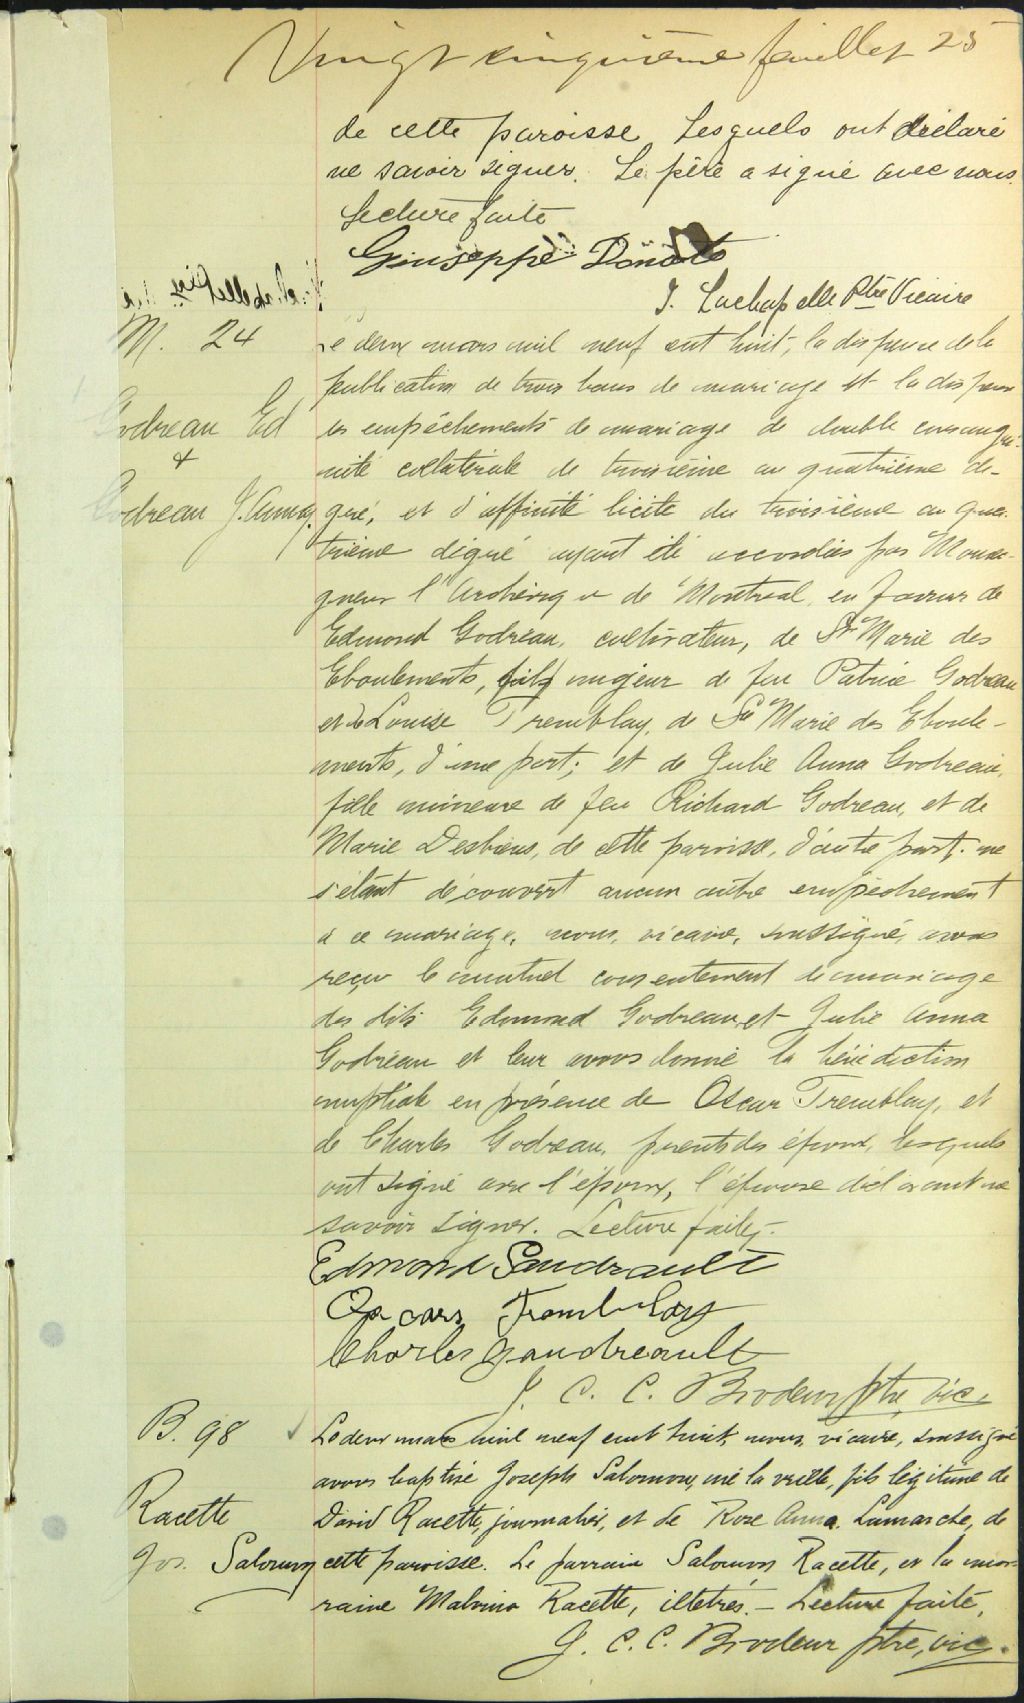 Vingt cinquième feuillet 25
de cette paroisse Lesquels ont déclaré
ne savoir signer. Le père a signé avec nous.
Lecture faite
Giuseppe Donato
J. Lachapelle Ptre Vicaire
M. 24
Godreau Ed
+
Godreau J. Anna
Le deux mars mil neuf cent huit, la dispense de la
publication de trois bans de mariage et la dispense
des empêchements de mariage de double consangui-
nité collatérale de troisième au quatrième de-
gré, et d'affinité licite du troisième au qua-
trième degré ayant été accordées par Monsei-
gneur l'Archevêque de Montréal, en faveur de
Edmond Godreau, cultivateur, de Ste Marie des
Eboulements, fils majeur de feu Patrice Godreau
et de Louise Tremblay, de Ste Marie des Eboule-
ments, d'une part; et de Julie Anna Godreau,
fille mineure de feu Richard Godreau, et de
Marie Desbiens, de cette paroisse, d'autre part; ne
s'étant découvert aucun autre empêchement
à ce mariage, nous, vicaire, soussigné, avons
reçu le mutuel consentement de mariage
des dits Edmond Godreau et Julie Anna
Godreau et leur avons donné la bénédiction
nuptiale en présence de Oscar Tremblay, et
de Charles Godreau, parents des époux, lesquels
ont signé avec l'époux, l'épouse déclarant ne
savoir signer. Lecture faite,-
Edmond Gaudrault
Oscars Trembulay
Charles Gaudreault
J. C. C. Brodeur ptre, vic.
B. 98
Racette
Jos. Salomon
Le deux mars mil neuf cent huit, nous, vicaire, soussigné
avons baptisé Joseph Salomon, né la veille, fils légitime de
David Racette, journalier, et de Rose Anna Lamarche, de
cette paroisse. Le parrain Salomon Racette, et la mar-
raine Malvina Racette, illetrés. - Lecture faite,
J. C. C. Brodeur ptre, vic.